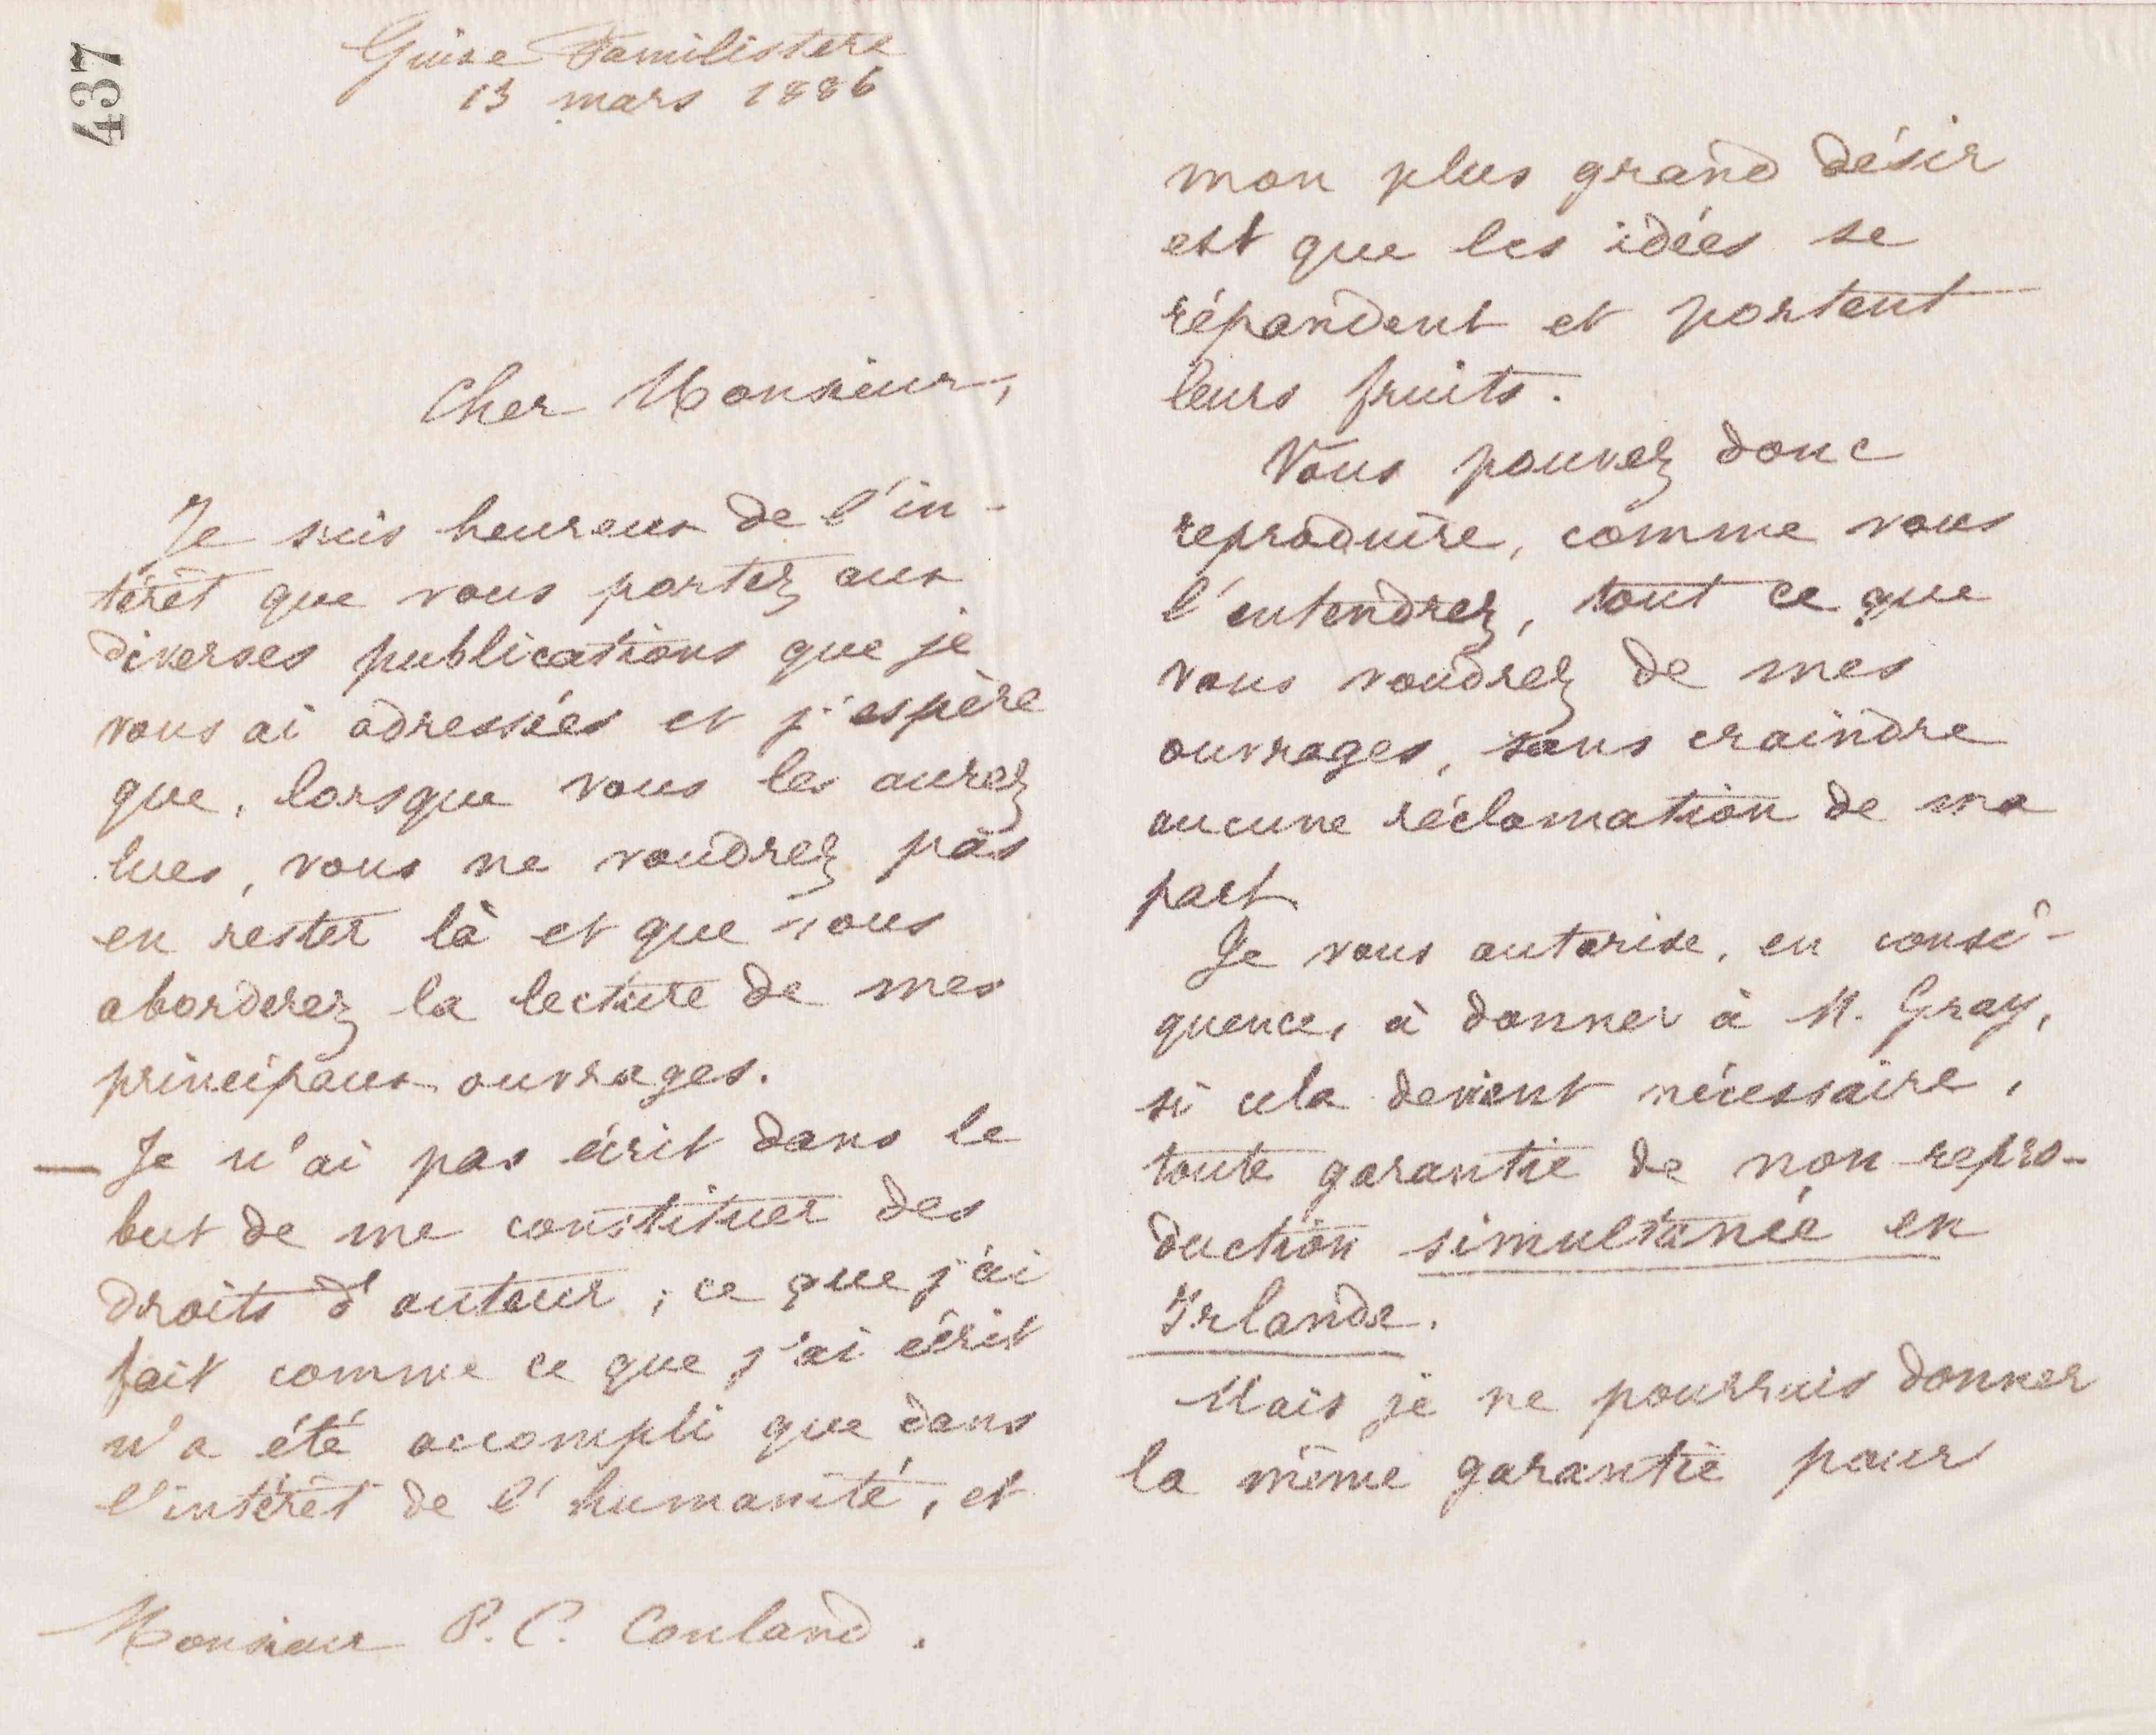 437
Guise Familistere
13 mars 1886
Cher Monsieur,
Je suis heureux de l'in-
térêt que vous portez aux
diverses publications que je
vous ai adressées et j'espère
que, lorsque vous les aurez
lues, vous ne voudrez pas
en rester là et que vous
aborderez la lecture de mes
principaux ouvrages.
— Je n'ai pas écrit dans le
but de me constituer des
droits d'auteur ; ce que j'ai
fait comme ce que j'ai écrit
n'a été accompli que dans
l'intérêt de l'humanité, et
Monsieur P. C. Conland.
mon plus grand désir
est que les idées se
répandent et portent
leurs fruits.
Vous pouvez donc
reproduire, comme vous
l'entendrez, tout ce que
vous voudrez de mes
ouvrages, sans craindre
aucune réclamation de ma
part.
Je vous autorise, en consé-
quence, à donner à M. Gray,
si cela devient nécessaire,
toute garantie de non-repro-
duction simultanée en
Irlande.
Mais je ne pourrais donner
la même garantie pour